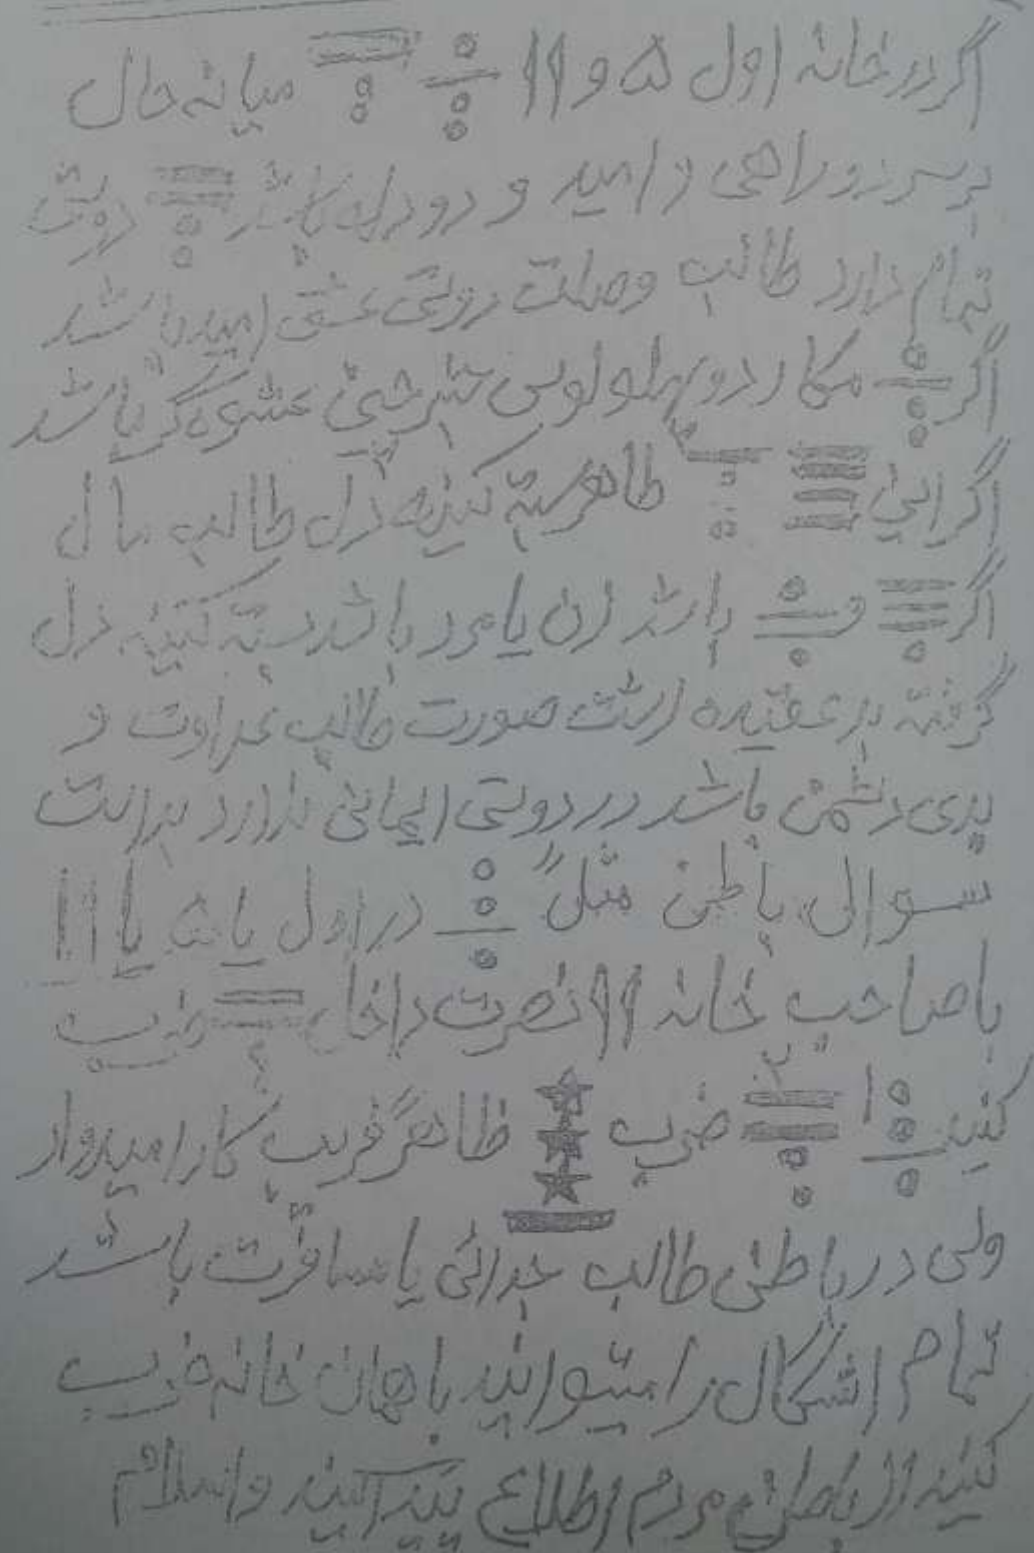 اگر در خانه اول ۵ و ۱۱ میانه حال
بر سر دو راهی و امید و دو دل باشد دوستی
تمام دارد طالب وصلت دوستی عشق امید باشد
اگر مکار دو پهلو لوس عشوه گر باشد
اگر این ظاهر کینه دل طالب مال
اگر و باشد زن یا مرد باشد بسته کینه دل
گرفته بد عقیده زشت صورت طالب عداوت و
بدی دشمن باشد در دوستی ایمانی ندارد
سوال باطن مثلاً در اول یا ۵ یا ۱۱
با صاحب خانه ۱۱ نصرت داخل ضرب
کنید ۱ ضرب ظاهر فریب کار امیدوار
ولی در باطن طالب جدائی یا مسافرت باشد
تمام اشکال را میتوانید با همان خانه ضرب
کنید از باطن مردم اطلاع پیدا کنید والسلام